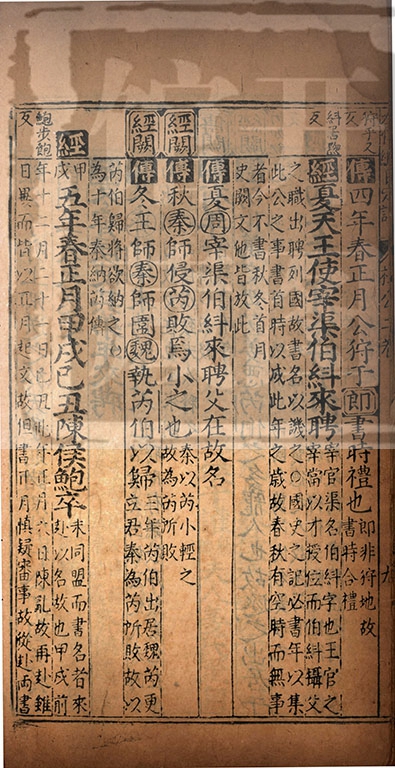 狩手又反傳四年春正月公狩于郎書時禮也即非狩地故
書時合禮
糾居黝反經夏天王使宰渠伯糾來聘宰官渠名伯糾字也王官之
宰當以才授位而伯糾攝父
之職出聘列國故書名以譏之〇國史之記必書年以集
此公之事書首時以成此年之歲故春秋有空時而無事
者今不書秋冬首月
史闕文他皆放此
傳夏周宰渠伯糾來聘父在故名
經闕傳秋秦師侵芮敗焉小之也秦以芮小輕之
故為芮所敗
經闕傳冬王師秦師圍魏執芮伯以歸三年芮伯出居魏芮更
立君秦為芮所敗故以
芮伯歸將欲納之〇
為十年秦納芮傳
經甲戌五年春正月甲戌己丑陳侯鮑卒未同盟而書名者來
赴以名故也甲戌前
鮑步飽反年十二月二十一日己丑此年正月六日陳亂故再赴雖
日異而皆以正月起文故但書正月慎疑審事故從赴兩書